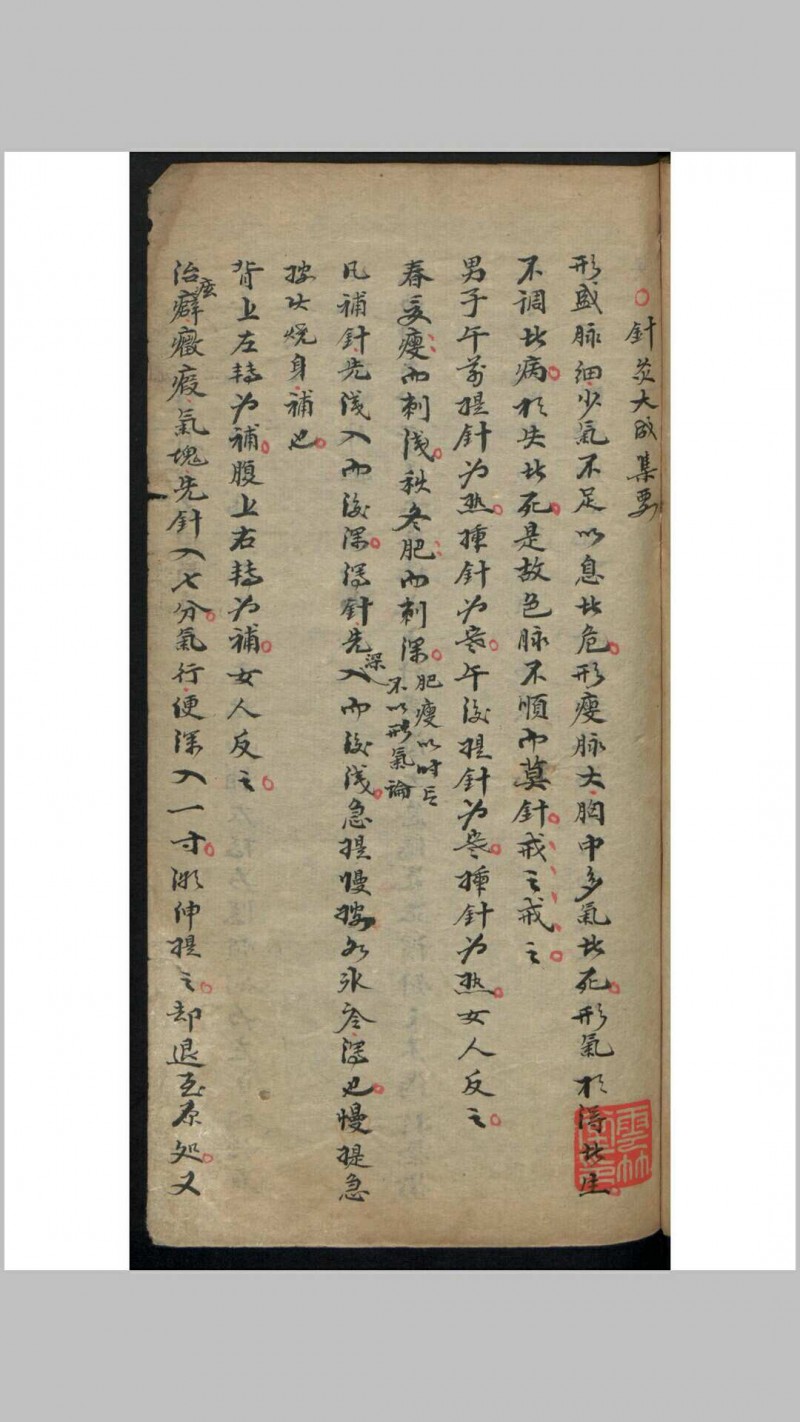 針灸大成集要
形盛脉细少氣不足以息者危形瘦脉大胸中多氣者死形氣相得者生
不調者病相失者死是故色脉不順而莫針戒之戒之
男子午前提針为热揷針为寒午後提針为寒揷針为热女人反之
春夏瘦而刺浅秋冬肥而刺深
肥瘦以时言
不以形氣論
凡補針先浅入而後深瀉針先深入而後浅急提慢按如氷冷瀉也慢提急
按火燒身補也
背上左轉为補腹上右轉为補女人反之
治痃癖癥瘕氣塊先針入七分氣行便深入一寸微伸提之却退至原処又
雲林